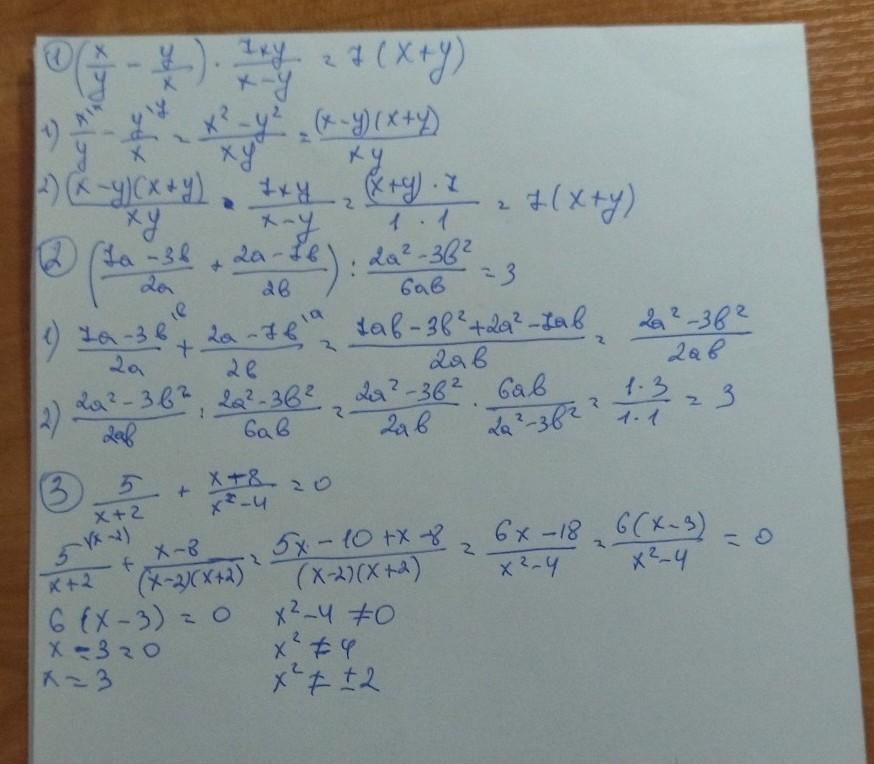 ① (x/y - y/x) · 7xy/(x-y) = 7(x+y)
1) x\x/y - y\y/x = (x² - y²)/(xy) = (x-y)(x+y)/(xy)
2) (x-y)(x+y)/(xy) · 7xy/(x-y) = (x+y)·7/(1·1) = 7(x+y)
② ((7a-3в)/(2a) + (2a-7в)/(2в)) : (2a²-3в²)/(6aв) = 3
1) (7a-3в)\в/(2a) + (2a-7в)\a/(2в) = (7aв-3в²+2a²-7aв)/(2aв) = (2a²-3в²)/(2aв)
2) (2a²-3в²)/(2aв) : (2a²-3в²)/(6aв) = (2a²-3в²)/(2aв) · 6aв/(2a²-3в²) = (1·3)/(1·1) = 3
③ 5/(x+2) + (x+8)/(x²-4) = 0
5\(x-2)/(x+2) + (x-8)/((x-2)(x+2)) = (5x-10+x-8)/((x-2)(x+2)) = (6x-18)/(x²-4) = 6(x-3)/(x²-4) = 0
6(x-3) = 0 x²-4 ≠ 0
x-3=0 x² ≠ 4
x = 3 x² ≠ ±2